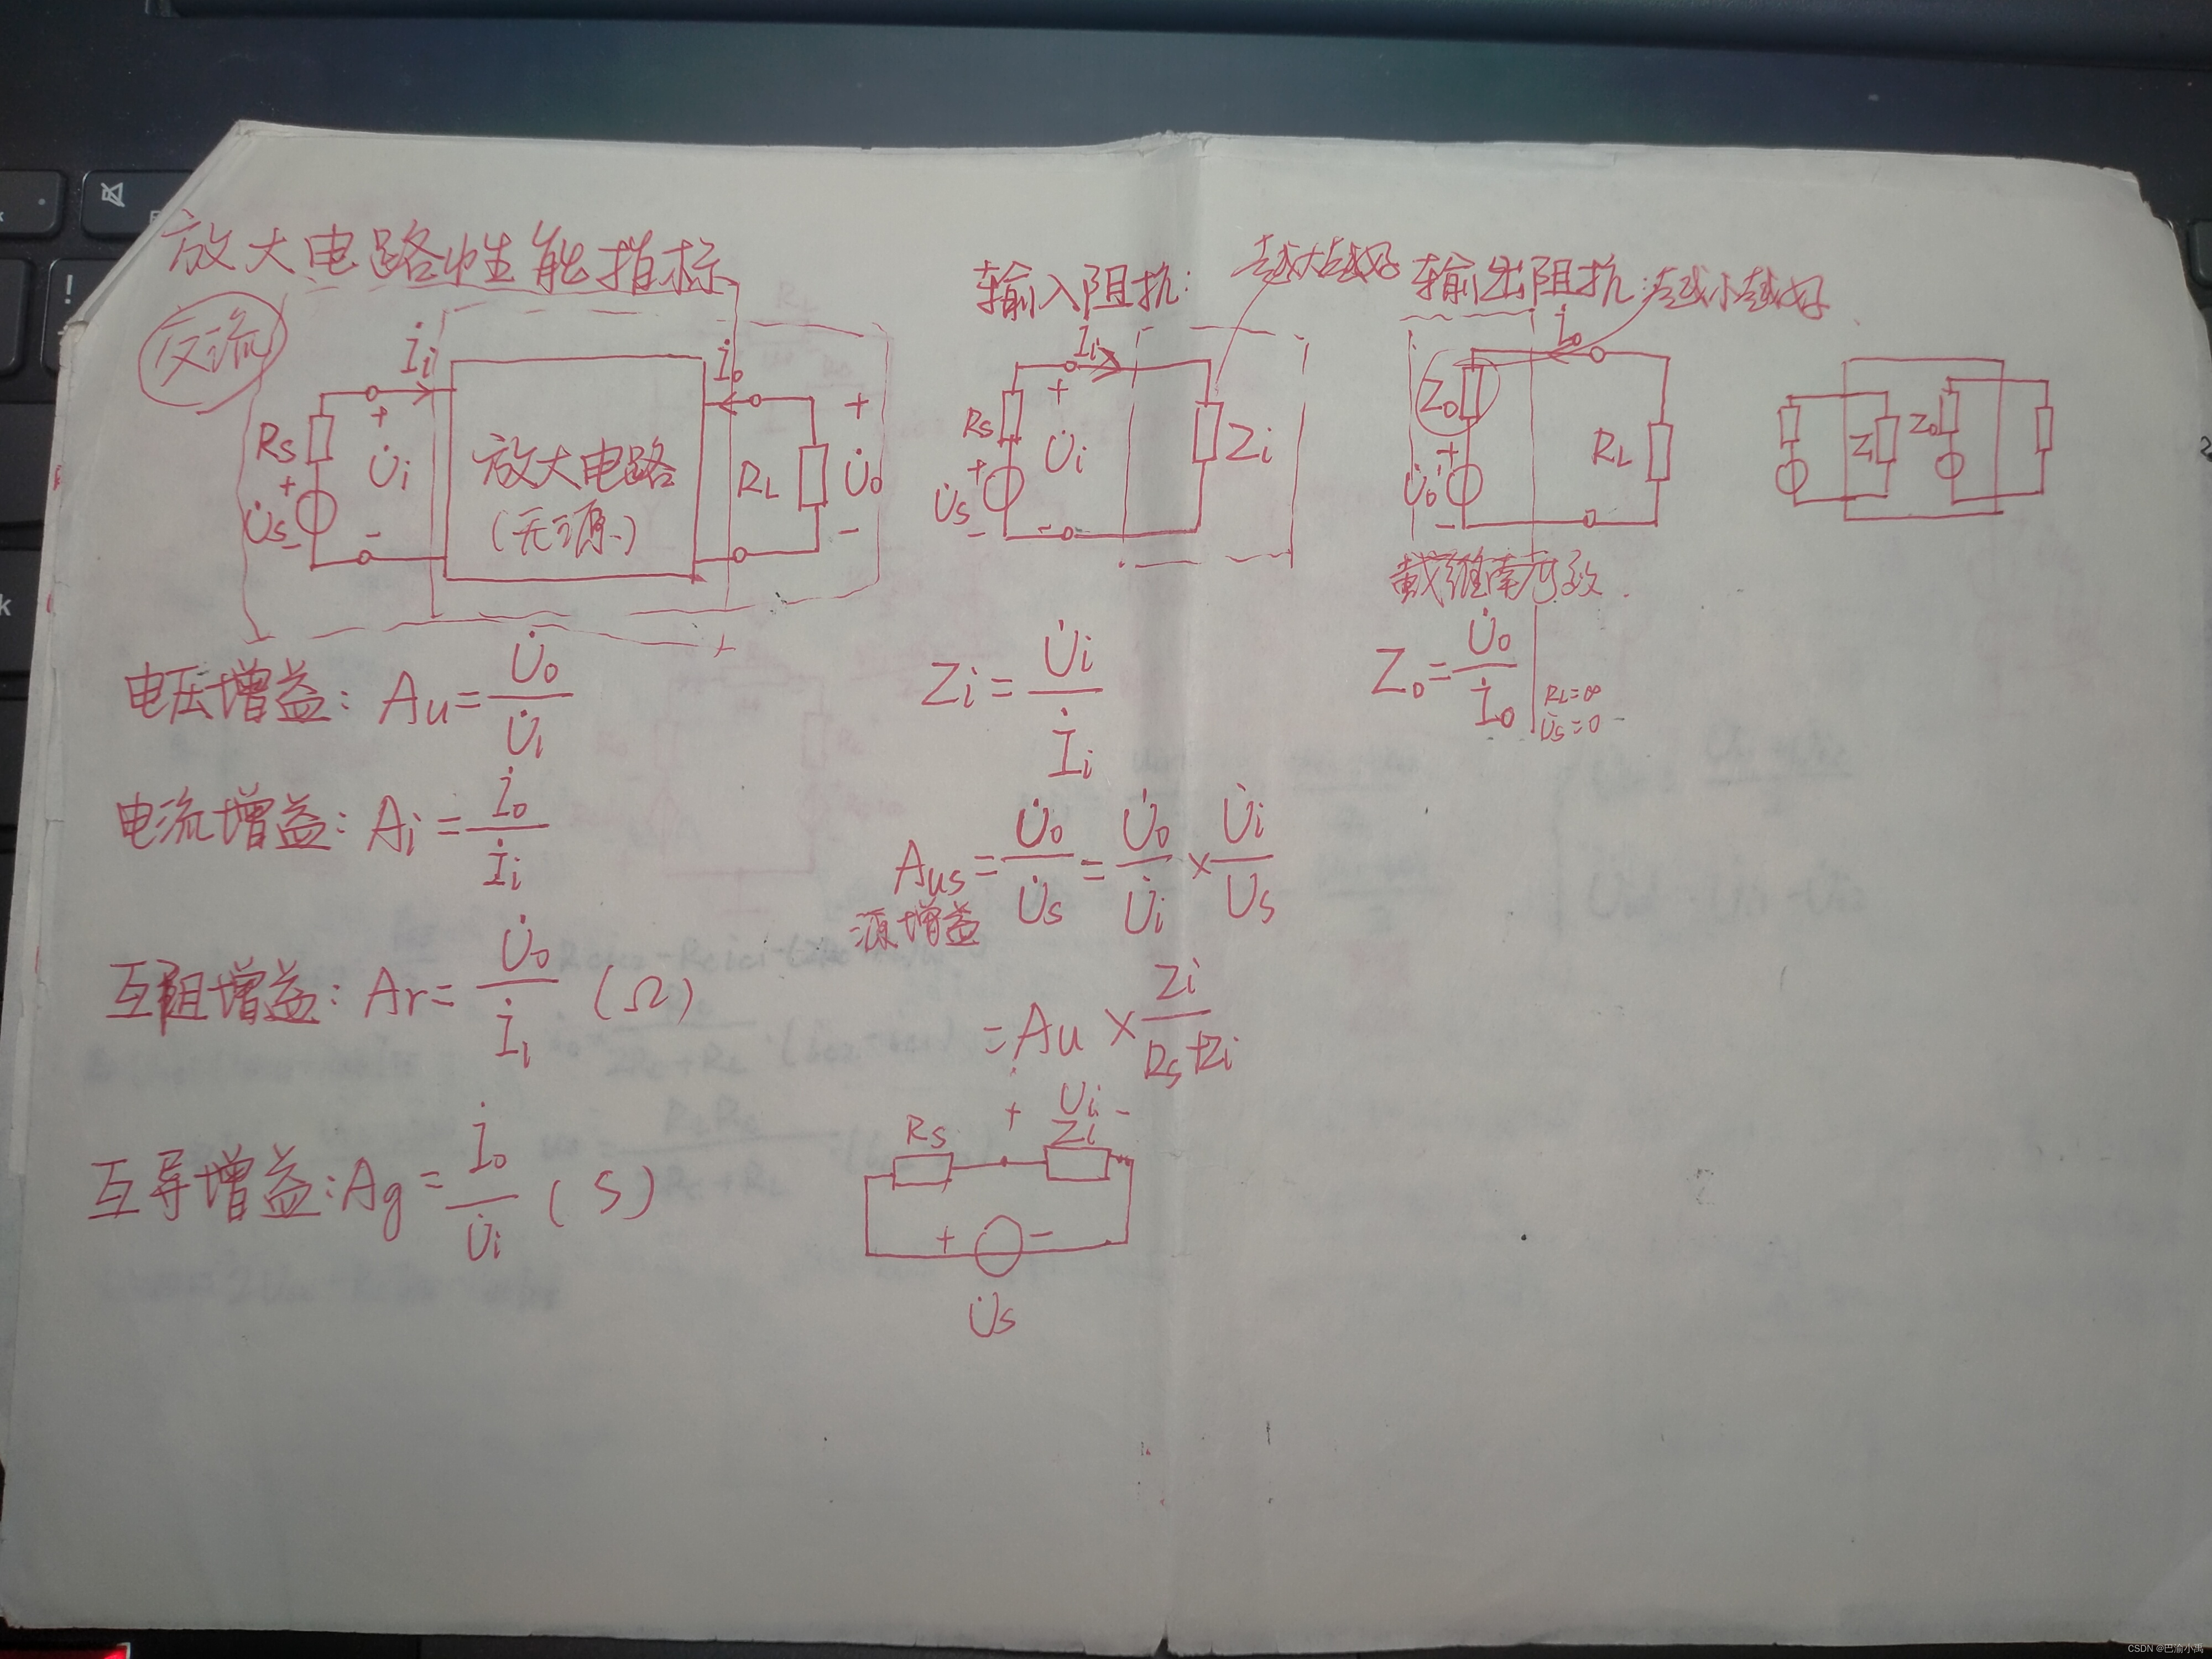 放大电路性能指标
交流
İi
İo
Rs
+
U̇i
-
+
U̇s
-
放大电路
(无源)
RL
+
U̇o
-
电压增益: Au = U̇o / U̇i
电流增益: Ai = İo / İi
互阻增益: Ar = U̇o / İi (Ω)
互导增益: Ag = İo / U̇i (S)
输入阻抗:
越大越好
İi
Rs
+
U̇i
-
+
U̇s
-
Zi
Zi = U̇i / İi
Aus = U̇o / U̇s = U̇o / U̇i × U̇i / Us
源增益
= Au × Zi / Rs+Zi
Rs
+ Ui -
Zi
+ -
U̇s
输出阻抗:
越小越好
İo
Zo
+
U̇o'
-
RL
戴维南等效
Zo = U̇o / İo | RL=∞
U̇s=0
Zi
Zo
CSDN @巴渝小禹